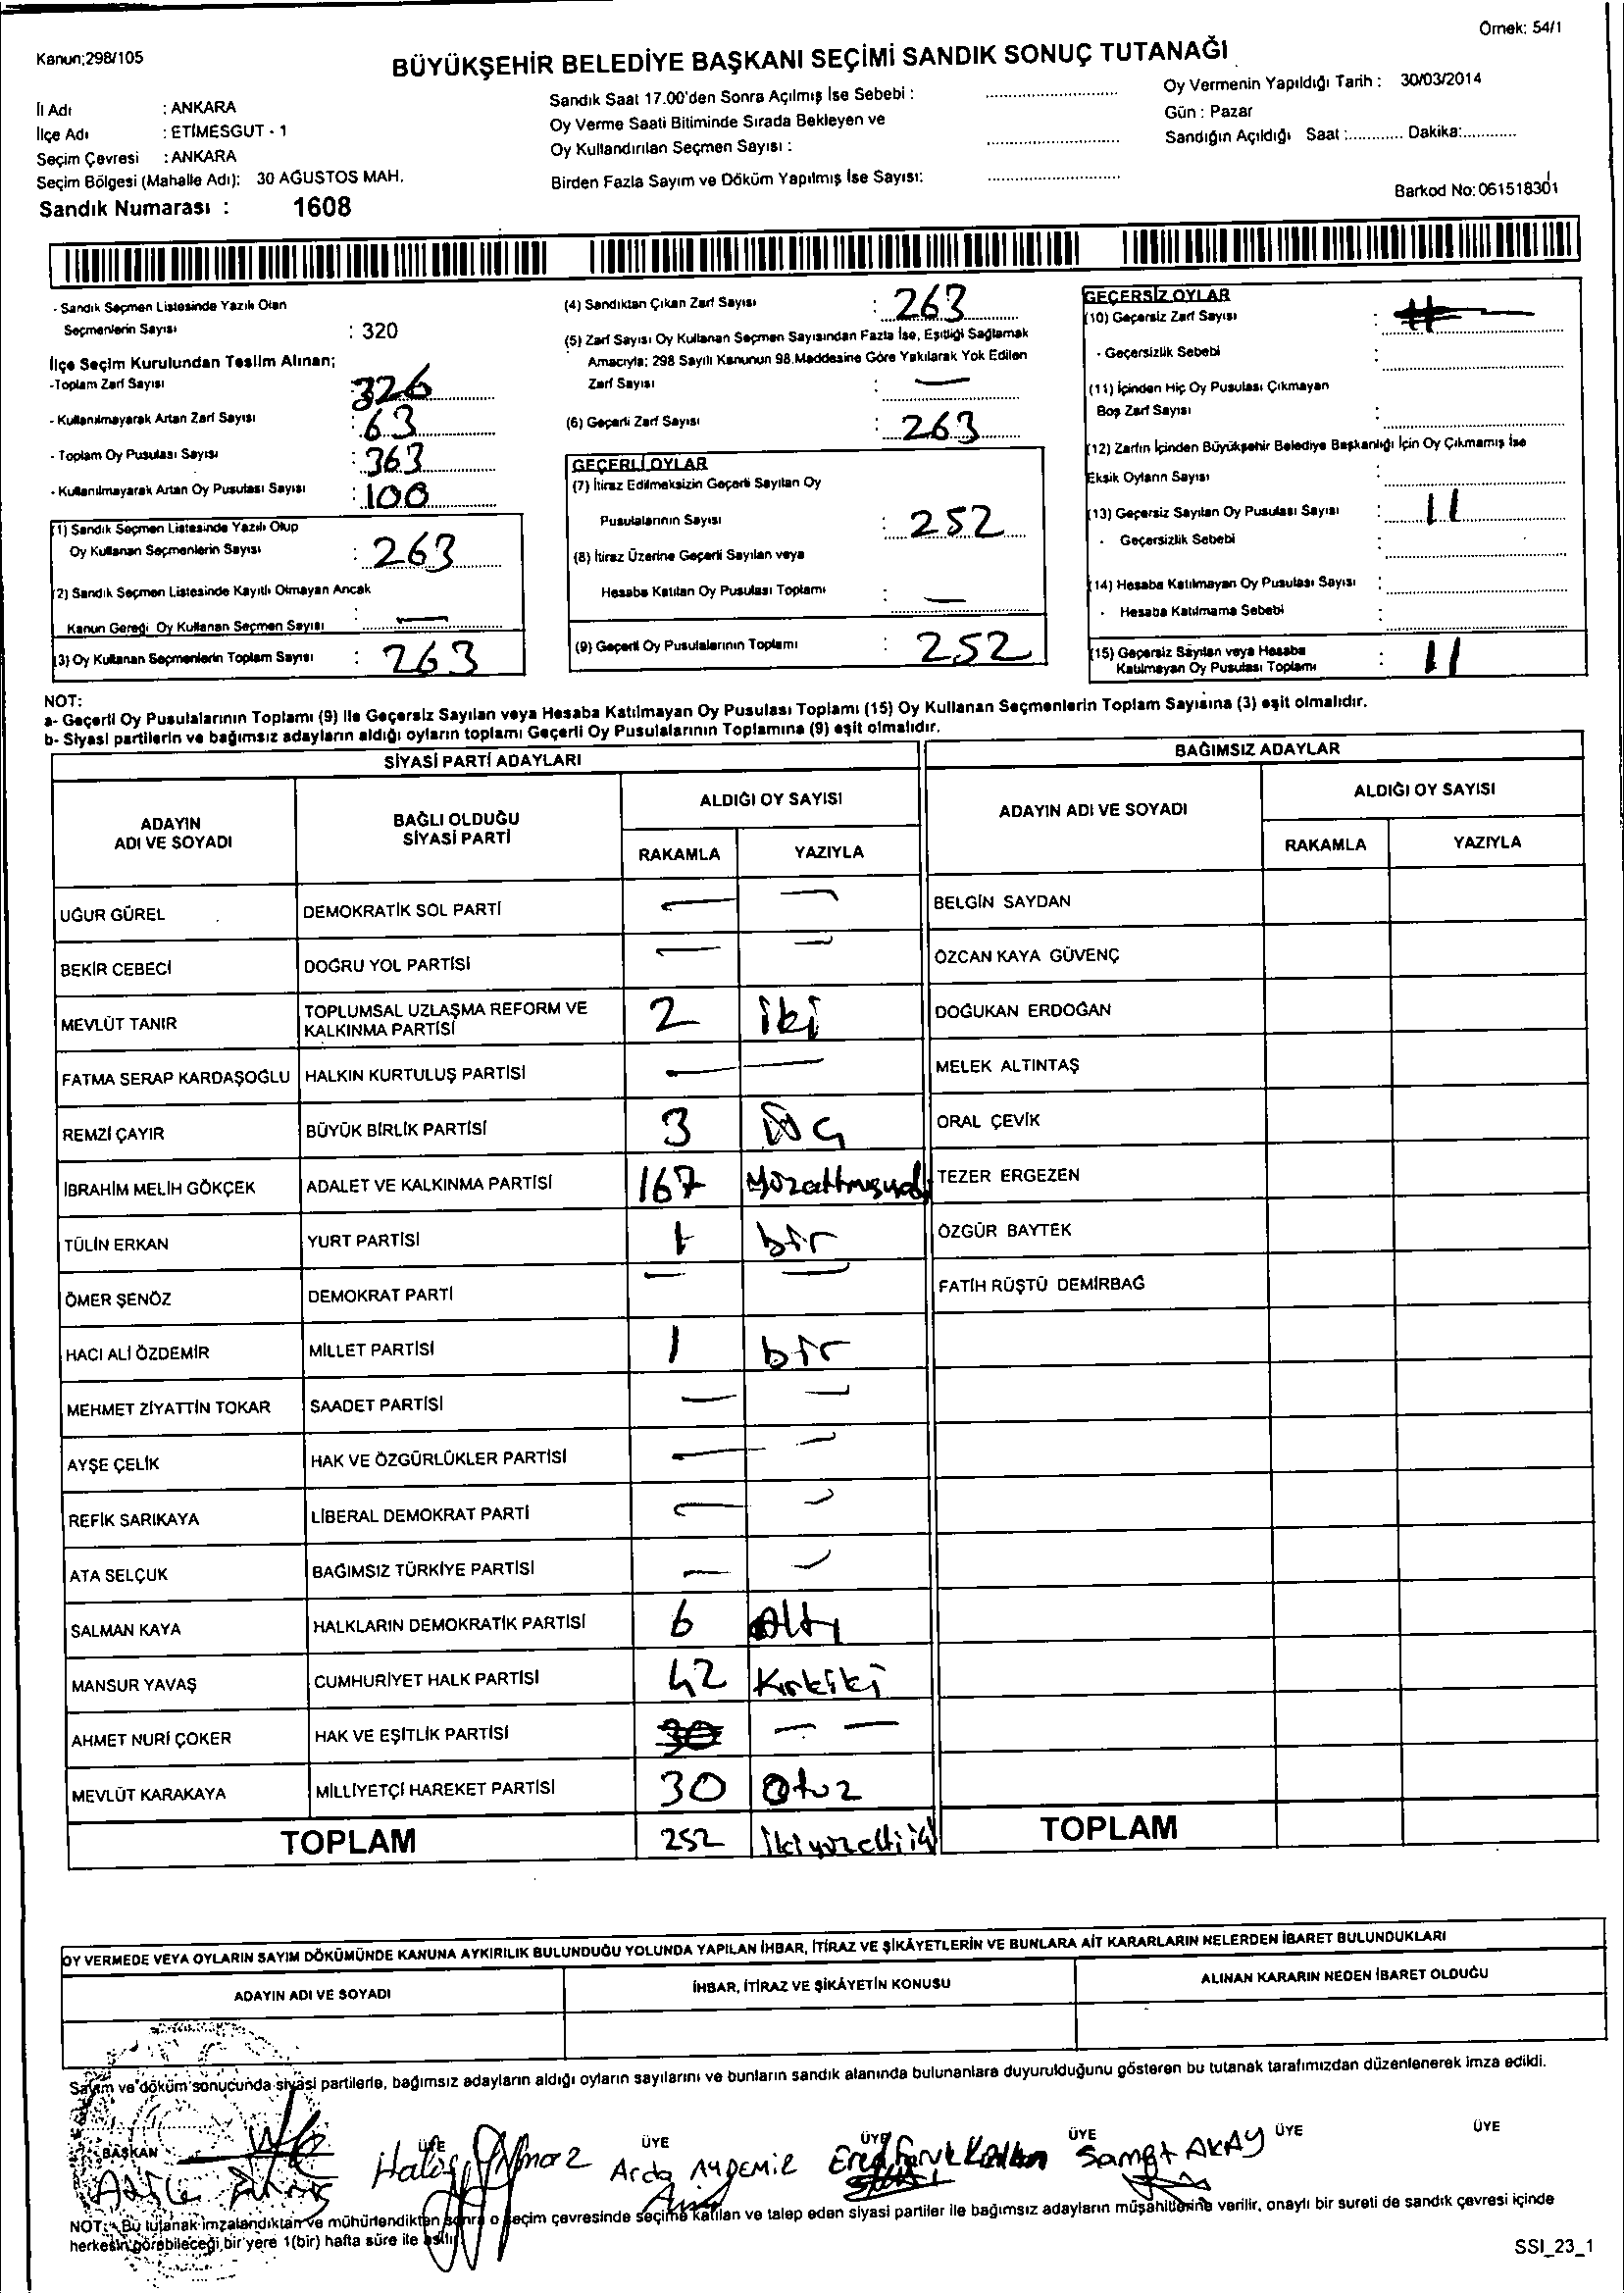 Örnek: 54/1
Kanun;298/105
BÜYÜKŞEHİR BELEDİYE BAŞKANI SEÇİMİ SANDIK SONUÇ TUTANAĞI
İl Adı : ANKARA
İlçe Adı : ETİMESGUT - 1
Seçim Çevresi : ANKARA
Seçim Bölgesi (Mahalle Adı): 30 AĞUSTOS MAH.
Sandık Numarası : 1608
Sandık Saat 17.00'den Sonra Açılmış İse Sebebi : ........................
Oy Verme Saati Bitiminde Sırada Bekleyen ve
Oy Kullandırılan Seçmen Sayısı : ........................
Birden Fazla Sayım ve Döküm Yapılmış İse Sayısı: ........................
Oy Vermenin Yapıldığı Tarih : 30/03/2014
Gün : Pazar
Sandığın Açıldığı Saat :............ Dakika:............
Barkod No: 061518301
- Sandık Seçmen Listesinde Yazılı Olan
Seçmenlerin Sayısı : 320
İlçe Seçim Kurulundan Teslim Alınan;
-Toplam Zarf Sayısı : 326
- Kullanılmayarak Artan Zarf Sayısı : 63
- Toplam Oy Pusulası Sayısı : 363
- Kullanılmayarak Artan Oy Pusulası Sayısı : 100
(1) Sandık Seçmen Listesinde Yazılı Olup
Oy Kullanan Seçmenlerin Sayısı : 263
(2) Sandık Seçmen Listesinde Kayıtlı Olmayan Ancak
Kanun Gereği Oy Kullanan Seçmen Sayısı —
(3) Oy Kullanan Seçmenlerin Toplam Sayısı : 263
(4) Sandıktan Çıkan Zarf Sayısı : 263
(5) Zarf Sayısı Oy Kullanan Seçmen Sayısından Fazla İse, Eşitliği Sağlamak
Amacıyla; 298 Sayılı Kanunun 98.Maddesine Göre Yakılarak Yok Edilen
Zarf Sayısı : —
(6) Geçerli Zarf Sayısı : 263
GEÇERLİ OYLAR
(7) İtiraz Edilmeksizin Geçerli Sayılan Oy
Pusulalarının Sayısı : 252
(8) İtiraz Üzerine Geçerli Sayılan veya
Hesaba Katılan Oy Pusulası Toplamı : —
(9) Geçerli Oy Pusulalarının Toplamı : 252
GEÇERSİZ OYLAR
(10) Geçersiz Zarf Sayısı :
- Geçersizlik Sebebi :
(11) İçinden Hiç Oy Pusulası Çıkmayan
Boş Zarf Sayısı :
(12) Zarfın İçinden Büyükşehir Belediye Başkanlığı İçin Oy Çıkmamış İse
Eksik Oyların Sayısı :
(13) Geçersiz Sayılan Oy Pusulası Sayısı : 11
- Geçersizlik Sebebi :
(14) Hesaba Katılmayan Oy Pusulası Sayısı :
- Hesaba Katılmama Sebebi :
(15) Geçersiz Sayılan veya Hesaba
Katılmayan Oy Pusulası Toplamı : 11
NOT:
a- Geçerli Oy Pusulalarının Toplamı (9) ile Geçersiz Sayılan veya Hesaba Katılmayan Oy Pusulası Toplamı (15) Oy Kullanan Seçmenlerin Toplam Sayısına (3) eşit olmalıdır.
b- Siyasi partilerin ve bağımsız adayların aldığı oyların toplamı Geçerli Oy Pusulalarının Toplamına (9) eşit olmalıdır.
SİYASİ PARTİ ADAYLARI
ADAYIN ADI VE SOYADI
BAĞLI OLDUĞU SİYASİ PARTİ
ALDIĞI OY SAYISI
RAKAMLA YAZIYLA
UĞUR GÜREL DEMOKRATİK SOL PARTİ — —
BEKİR CEBECİ DOĞRU YOL PARTİSİ — —
MEVLÜT TANIR TOPLUMSAL UZLAŞMA REFORM VE KALKINMA PARTİSİ 2 iki
FATMA SERAP KARDAŞOĞLU HALKIN KURTULUŞ PARTİSİ — —
REMZİ ÇAYIR BÜYÜK BİRLİK PARTİSİ 3 üç
İBRAHİM MELİH GÖKÇEK ADALET VE KALKINMA PARTİSİ 167
TÜLİN ERKAN YURT PARTİSİ 1 bir
ÖMER ŞENÖZ DEMOKRAT PARTİ — —
HACI ALİ ÖZDEMİR MİLLET PARTİSİ 1 bir
MEHMET ZİYATTİN TOKAR SAADET PARTİSİ — —
AYŞE ÇELİK HAK VE ÖZGÜRLÜKLER PARTİSİ — —
REFİK SARIKAYA LİBERAL DEMOKRAT PARTİ — —
ATA SELÇUK BAĞIMSIZ TÜRKİYE PARTİSİ — —
SALMAN KAYA HALKLARIN DEMOKRATİK PARTİSİ 6 Altı
MANSUR YAVAŞ CUMHURİYET HALK PARTİSİ 42 Kırkiki
AHMET NURİ ÇOKER HAK VE EŞİTLİK PARTİSİ 30 — —
MEVLÜT KARAKAYA MİLLİYETÇİ HAREKET PARTİSİ 30 Otuz
TOPLAM 252 İkiyüzelliiki
BAĞIMSIZ ADAYLAR
ADAYIN ADI VE SOYADI
ALDIĞI OY SAYISI
RAKAMLA YAZIYLA
BELGİN SAYDAN
ÖZCAN KAYA GÜVENÇ
DOĞUKAN ERDOĞAN
MELEK ALTINTAŞ
ORAL ÇEVİK
TEZER ERGEZEN
ÖZGÜR BAYTEK
FATİH RÜŞTÜ DEMİRBAĞ
TOPLAM
OY VERMEDE VEYA OYLARIN SAYIM DÖKÜMÜNDE KANUNA AYKIRILIK BULUNDUĞU YOLUNDA YAPILAN İHBAR, İTİRAZ VE ŞİKÂYETLERİN VE BUNLARA AİT KARARLARIN NELERDEN İBARET BULUNDUKLARI
ADAYIN ADI VE SOYADI İHBAR, İTİRAZ VE ŞİKÂYETİN KONUSU ALINAN KARARIN NEDEN İBARET OLDUĞU
Sayım ve döküm sonucunda siyasi partilerle, bağımsız adayların aldığı oyların sayılarını ve bunların sandık alanında bulunanlara duyurulduğunu gösteren bu tutanak tarafımızdan düzenlenerek imza edildi.
BAŞKAN ÜYE ÜYE ÜYE ÜYE ÜYE ÜYE
Arda AYDEMİR
Samet AKAY
NOT: Bu tutanak imzalandıktan ve mühürlendikten sonra o seçim çevresinde seçime katılan ve talep eden siyasi partiler ile bağımsız adayların müşahitlerine verilir, onaylı bir sureti de sandık çevresi içinde
herkesin görebileceği bir yere 1(bir) hafta süre ile asılır.
SSI_23_1